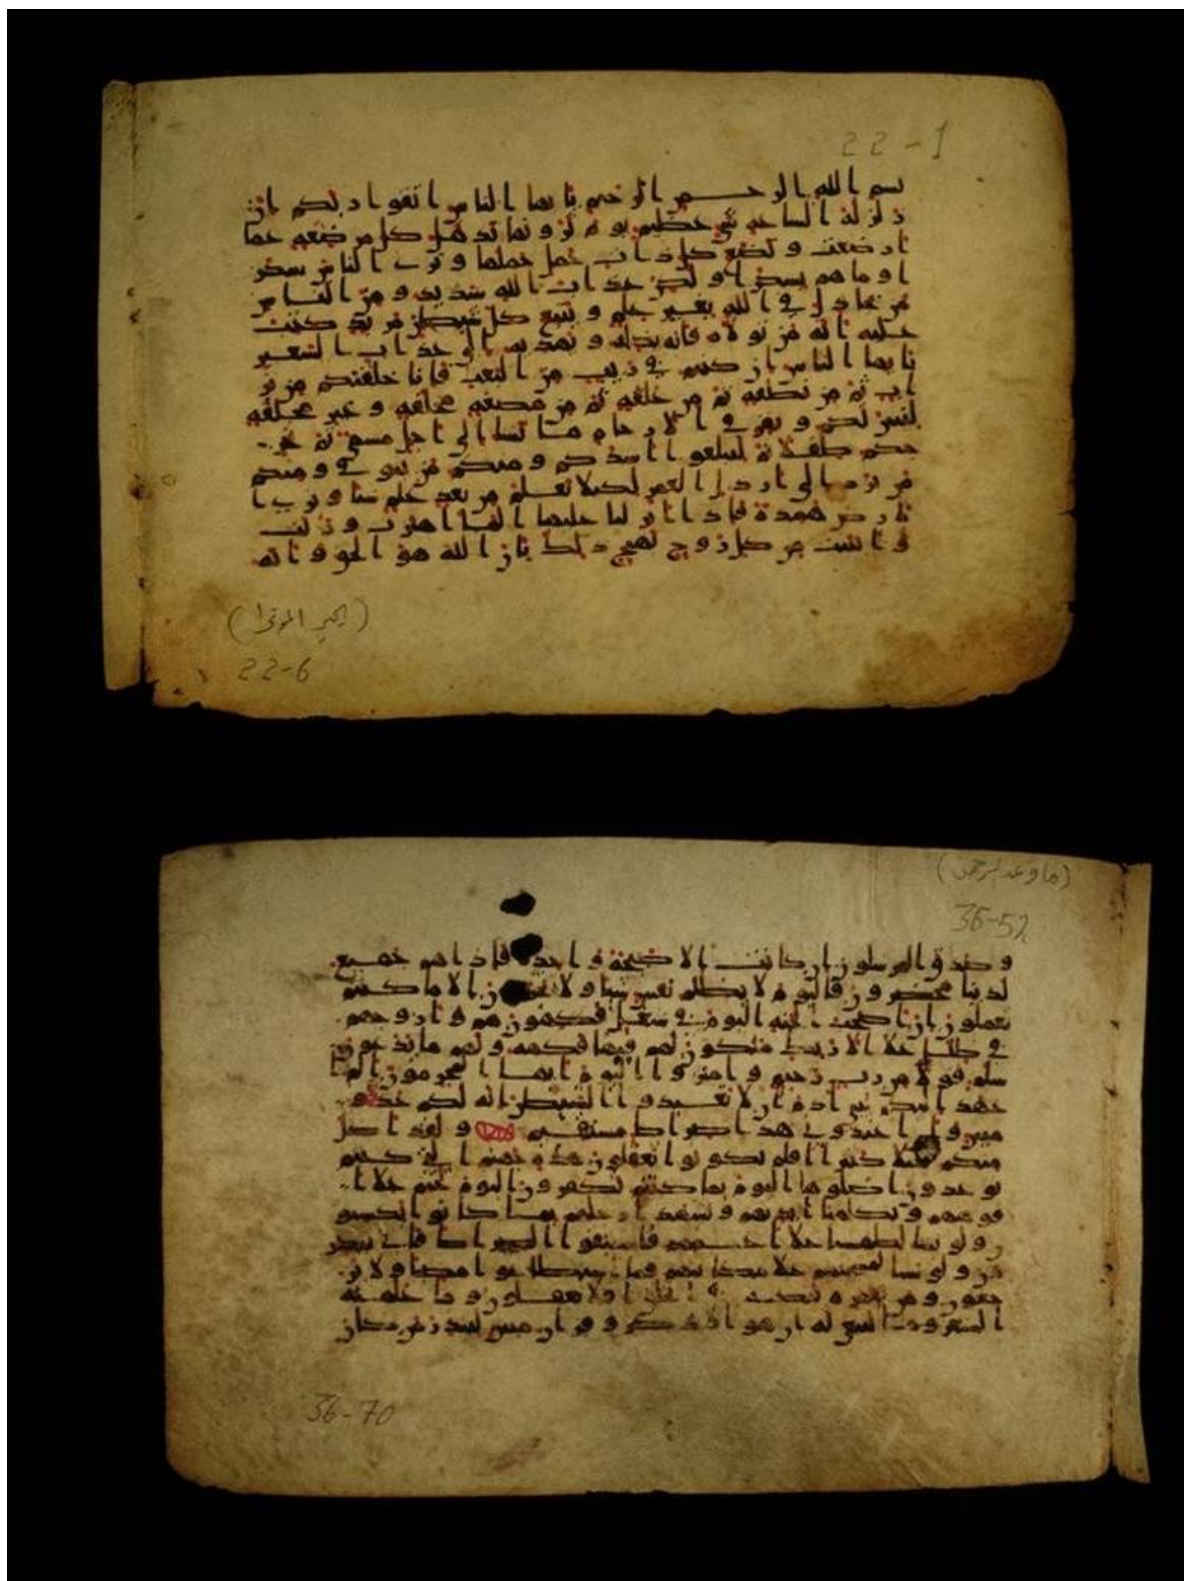 22-1
بسم الله الرحمن الرحيم يايها الناس اتقوا ربكم ان
زلزلة الساعة شي عظيم يوم ترونها تذهل كل مرضعة عما
ارضعت وتضع كل ذات حمل حملها وترى الناس سكر
ا وما هم بسكرا ولكن عذاب الله شديد ومن الناس
من يجادل في الله بغير علم ويتبع كل شيطن مريد كتب
عليه انه من تولاه فانه يضله ويهديه الى عذاب السعير
يايها الناس ان كنتم في ريب من البعث فانا خلقنكم من تر
اب ثم من نطفة ثم من علقة ثم من مضغة مخلقة وغير مخلقة
لنبين لكم ونقر في الارحام ما نشا الى اجل مسمى ثم نخر
جكم طفلا ثم لتبلغوا اشدكم ومنكم من يتوفى ومنكم
من يرد الى ارذل العمر لكيلا يعلم من بعد علم شيا وترى ا
لارض همدة فاذا انزلنا عليها الما اهتزت وربت
وانبتت من كل زوج بهيج ذلك بان الله هو الحق وانه
22-6
36-52
وصدق المرسلون ان كانت الا صيحة واحدة فاذا هم جميع
لدينا محضرون فاليوم لا تظلم نفس شيا ولا تجزون الا ما كنتم
تعملون ان اصحب الجنة اليوم في شغل فكهون هم وازوجهم
في ظلل على الاريك متكون لهم فيها فكهة ولهم ما يدعون
سلم قولا من رب رحيم وامتزوا اليوم ايها المجرمون الم ا
عهد اليكم يبني ادم ان لا تعبدوا الشيطن انه لكم عدو
مبين وان اعبدوني هذا صراط مستقيم ولقد اضل
منكم جبلا كثيرا افلم تكونوا تعقلون هذه جهنم التي كنتم
توعدون اصلوها اليوم بما كنتم تكفرون اليوم نختم على ا
فوههم وتكلمنا ايديهم وتشهد ارجلهم بما كانوا يكسبو
ن ولو نشا لطمسنا على اعينهم فاستبقوا الصراط فانى يبصر
ون ولو نشا لمسخنهم على مكانتهم فما استطعوا مضيا ولا ير
جعون ومن نعمره ننكسه في الخلق افلا يعقلون وما علمنه
الشعر وما ينبغي له ان هو الا ذكر وقران مبين لينذر من كان
36-70